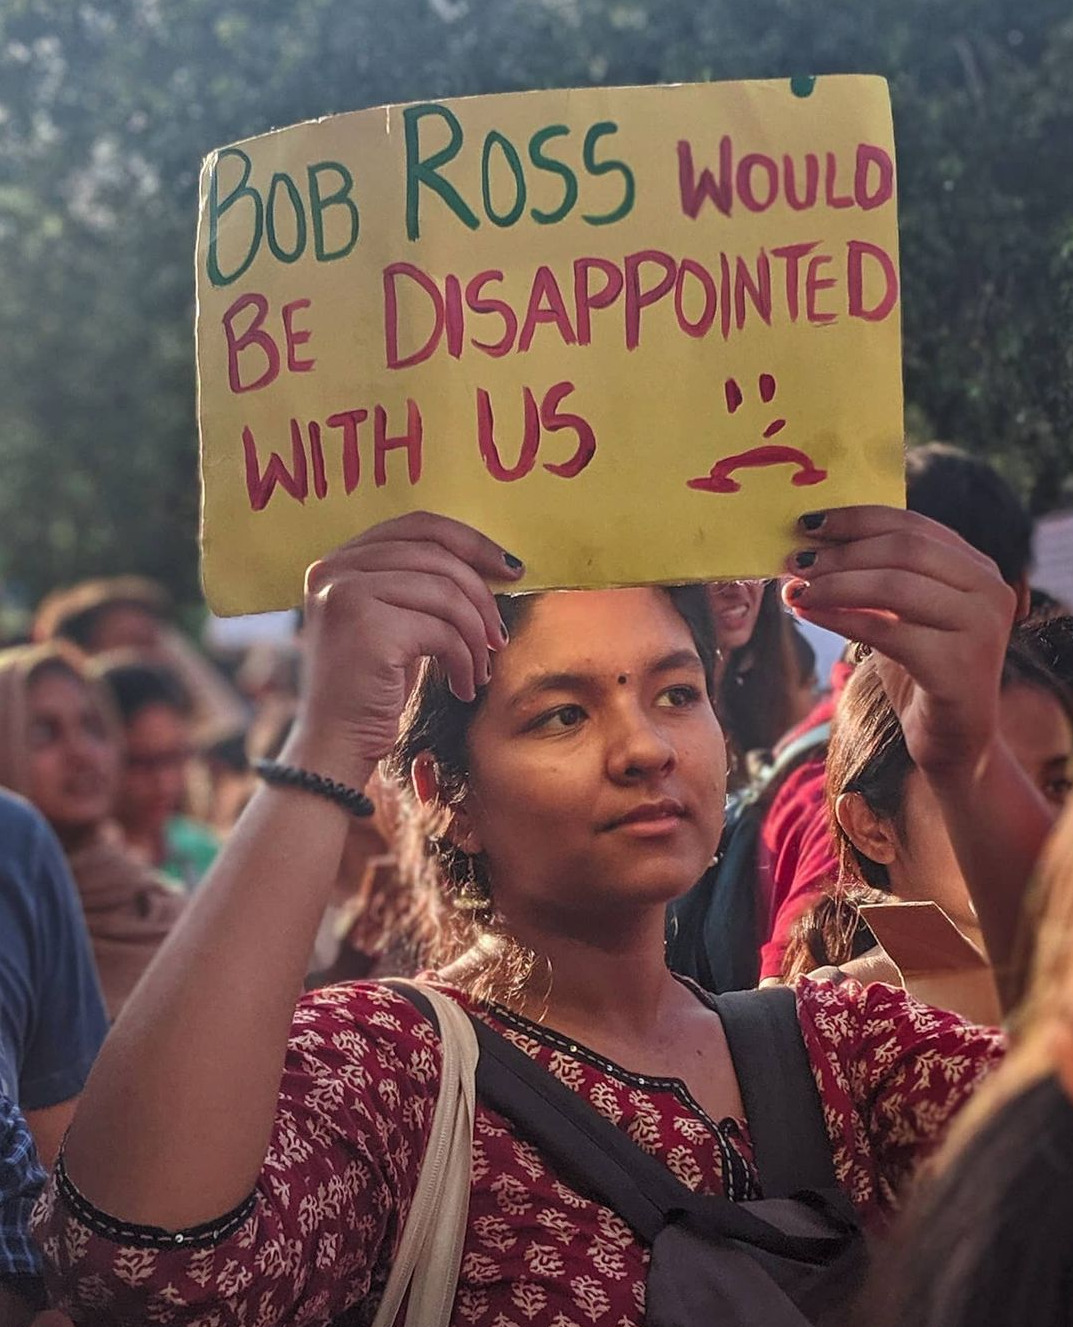 BOB ROSS WOULD
BE DISAPPOINTED
WITH US